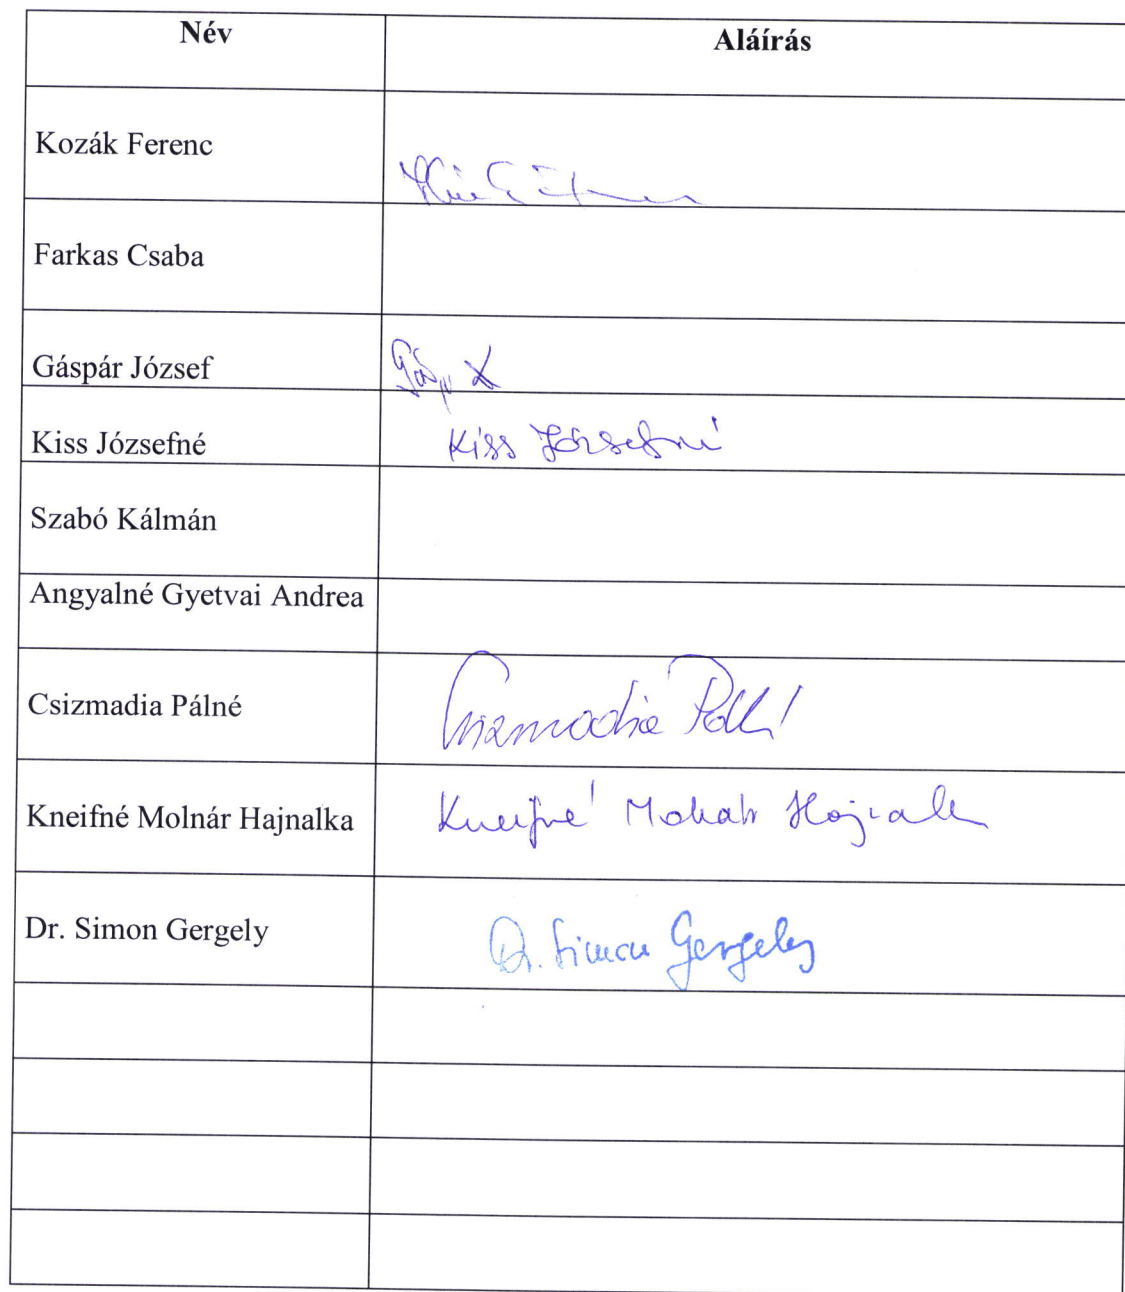 Név Aláírás
Kozák Ferenc
Farkas Csaba
Gáspár József
Kiss Józsefné Kiss Józsefné
Szabó Kálmán
Angyalné Gyetvai Andrea
Csizmadia Pálné Csizmadia
Kneifné Molnár Hajnalka Kneifné Molnár Hajnalk
Dr. Simon Gergely Dr. Simon Gergely